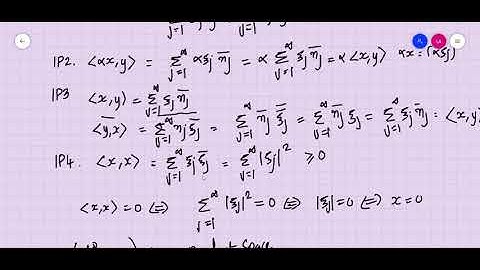 j=1 j=1
IP2. ⟨αx,y⟩ = ∑_{j=1}^{∞} αξj η̄j = α ∑_{j=1}^{∞} ξj η̄j = α⟨x,y⟩ αx = (αξj)
IP3 ⟨x,y⟩ = ∑_{j=1}^{∞} ξj η̄j
\overline{⟨y,x⟩} = \overline{∑_{j=1}^{∞} ηj ξ̄j} = ∑_{j=1}^{∞} η̄j \overline{ξ̄j} = ∑_{j=1}^{∞} η̄j ξj = ∑_{j=1}^{∞} ξj η̄j = ⟨x,y⟩
IP4. ⟨x,x⟩ = ∑_{j=1}^{∞} ξj ξ̄j = ∑_{j=1}^{∞} |ξj|² ≥0
⟨x,x⟩=0 ⟺ ∑_{j=1}^{∞} |ξj|²=0 ⟺ |ξj|=0 ⟺ x=0